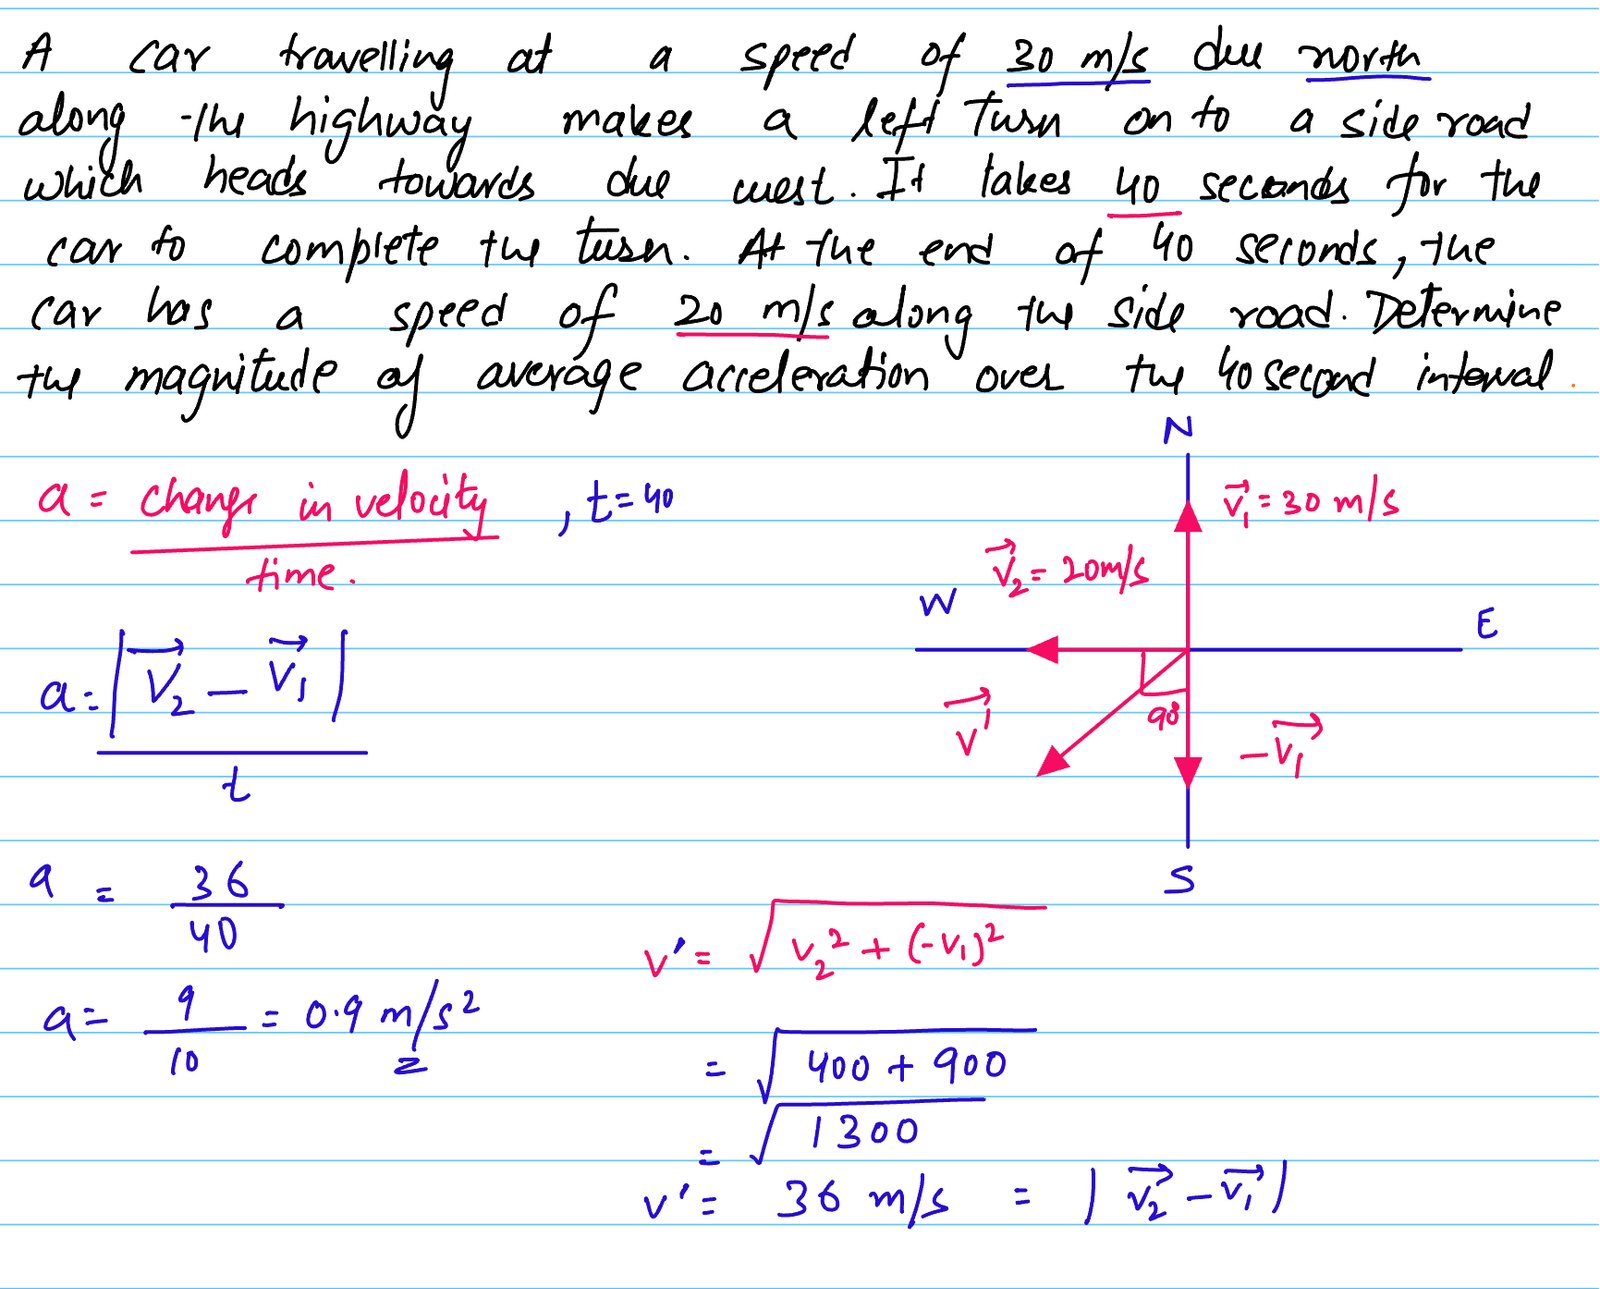 A car travelling at a speed of 30 m/s due north
along the highway makes a left turn on to a side road
which heads towards due west. It takes 40 seconds for the
car to complete the turn. At the end of 40 seconds, the
car has a speed of 20 m/s along the side road. Determine
the magnitude of average acceleration over the 40 second interval.
N
a = change in velocity / time. , t = 40
v₁⃗ = 30 m/s
v₂⃗ = 20m/s
W
E
a = |v₂⃗ − v₁⃗| / t
v⃗'
90°
−v₁⃗
S
a = 36/40
v' = √(v₂² + (−v₁)²)
a = 9/10 = 0.9 m/s²
= √(400 + 900)
= √1300
v' = 36 m/s = |v₂⃗ − v₁⃗|